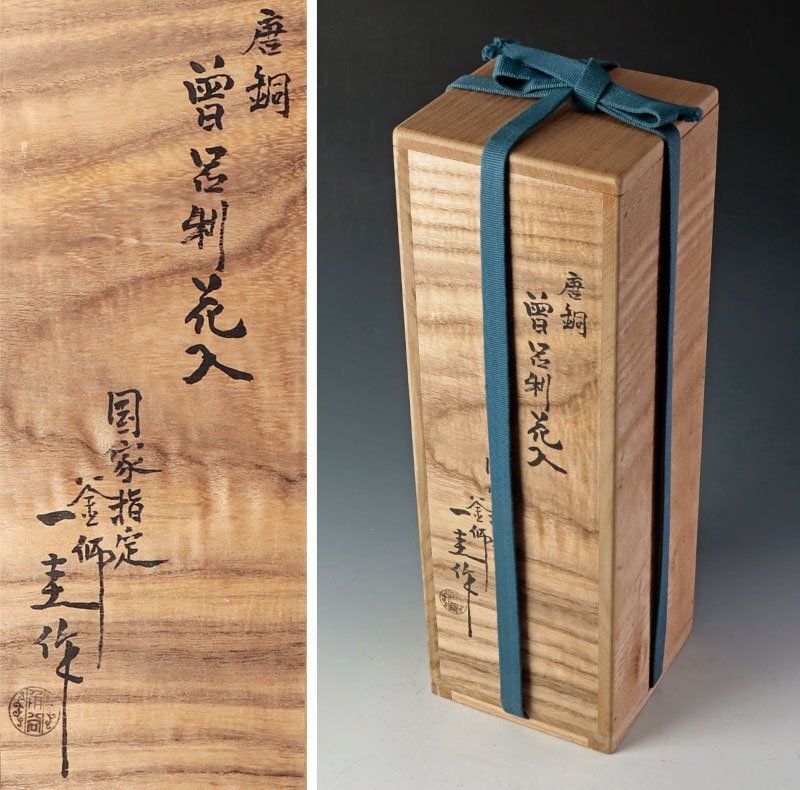 唐銅
曽呂利花入
国家指定
釜師
一圭作
唐銅
曽呂利花入
釜師
一圭作